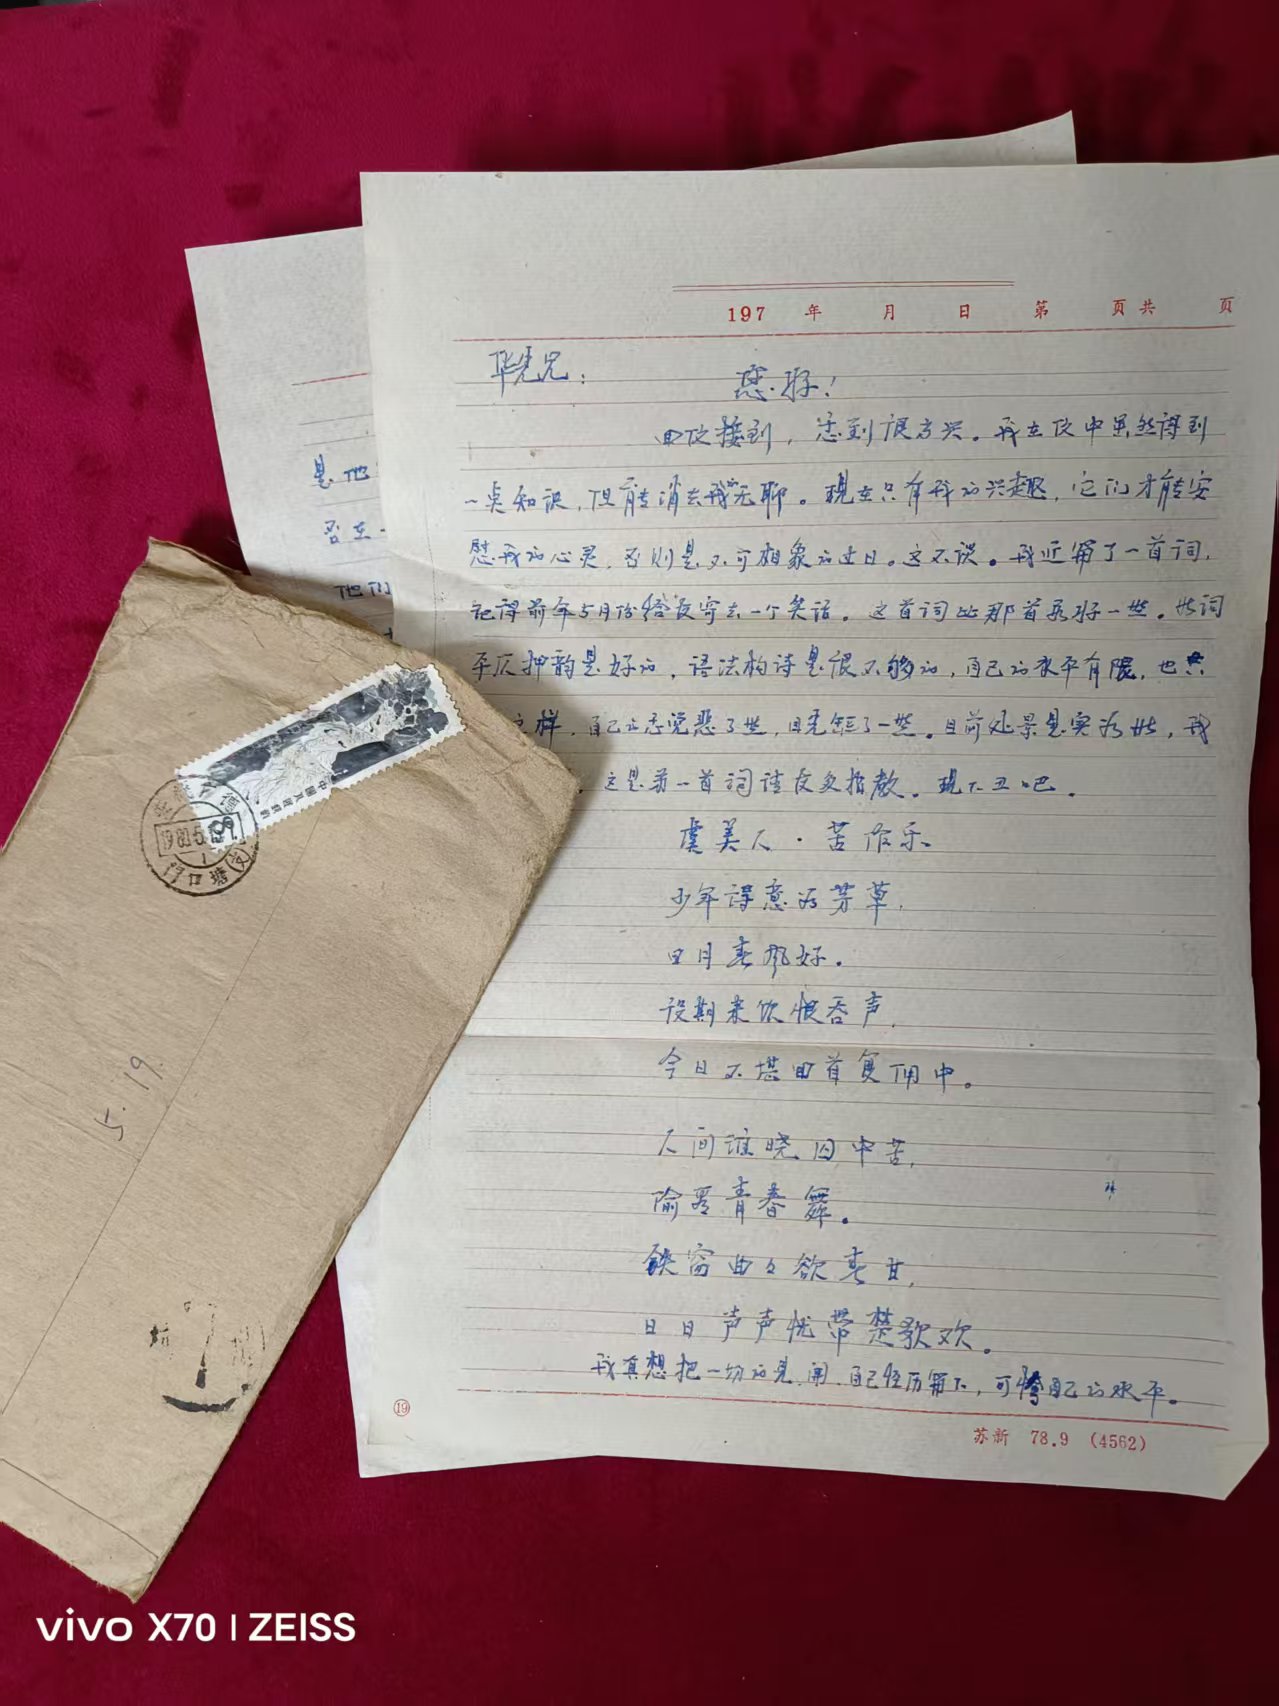 197 年 月 日 第 页共 页
华先兄：
您好！
回仪接到，悉到很高兴。我在仪中虽然得到
一臭知识，但能消去我的无聊。现在只有我的兴趣，它们才能安
慰我的心灵，否则是不可相象的过日。这不误。我近写了一首词，
记得前年5月份给友寄去一个笑话。这首词比那首要好一些。此词
平仄押韵是好的，语法构诗是很不够的，自己的水平有限，也只
这样，自己的志觉悲了些，目光短了一些。目前处景是实为此，我
。这是第一首词请友多指教。现下丑吧。
虞美人·苦作乐
少年得意为芳草，
四月春风好。
没期来饮恨吞声，
今日不堪回首复 中。
人间谁晓囚中苦，
隃 青春舞。
铁窗曲々欲春甘，
日日声声忧带楚歌欢。
我真想把一切的见、闻、自己经历写下，可惜自己的水平。
19
苏新 78.9 (4562)
是他
否在
他们
中国人民邮政
1980.5.
口塘
5.19.
7
vivo X70 | ZEISS